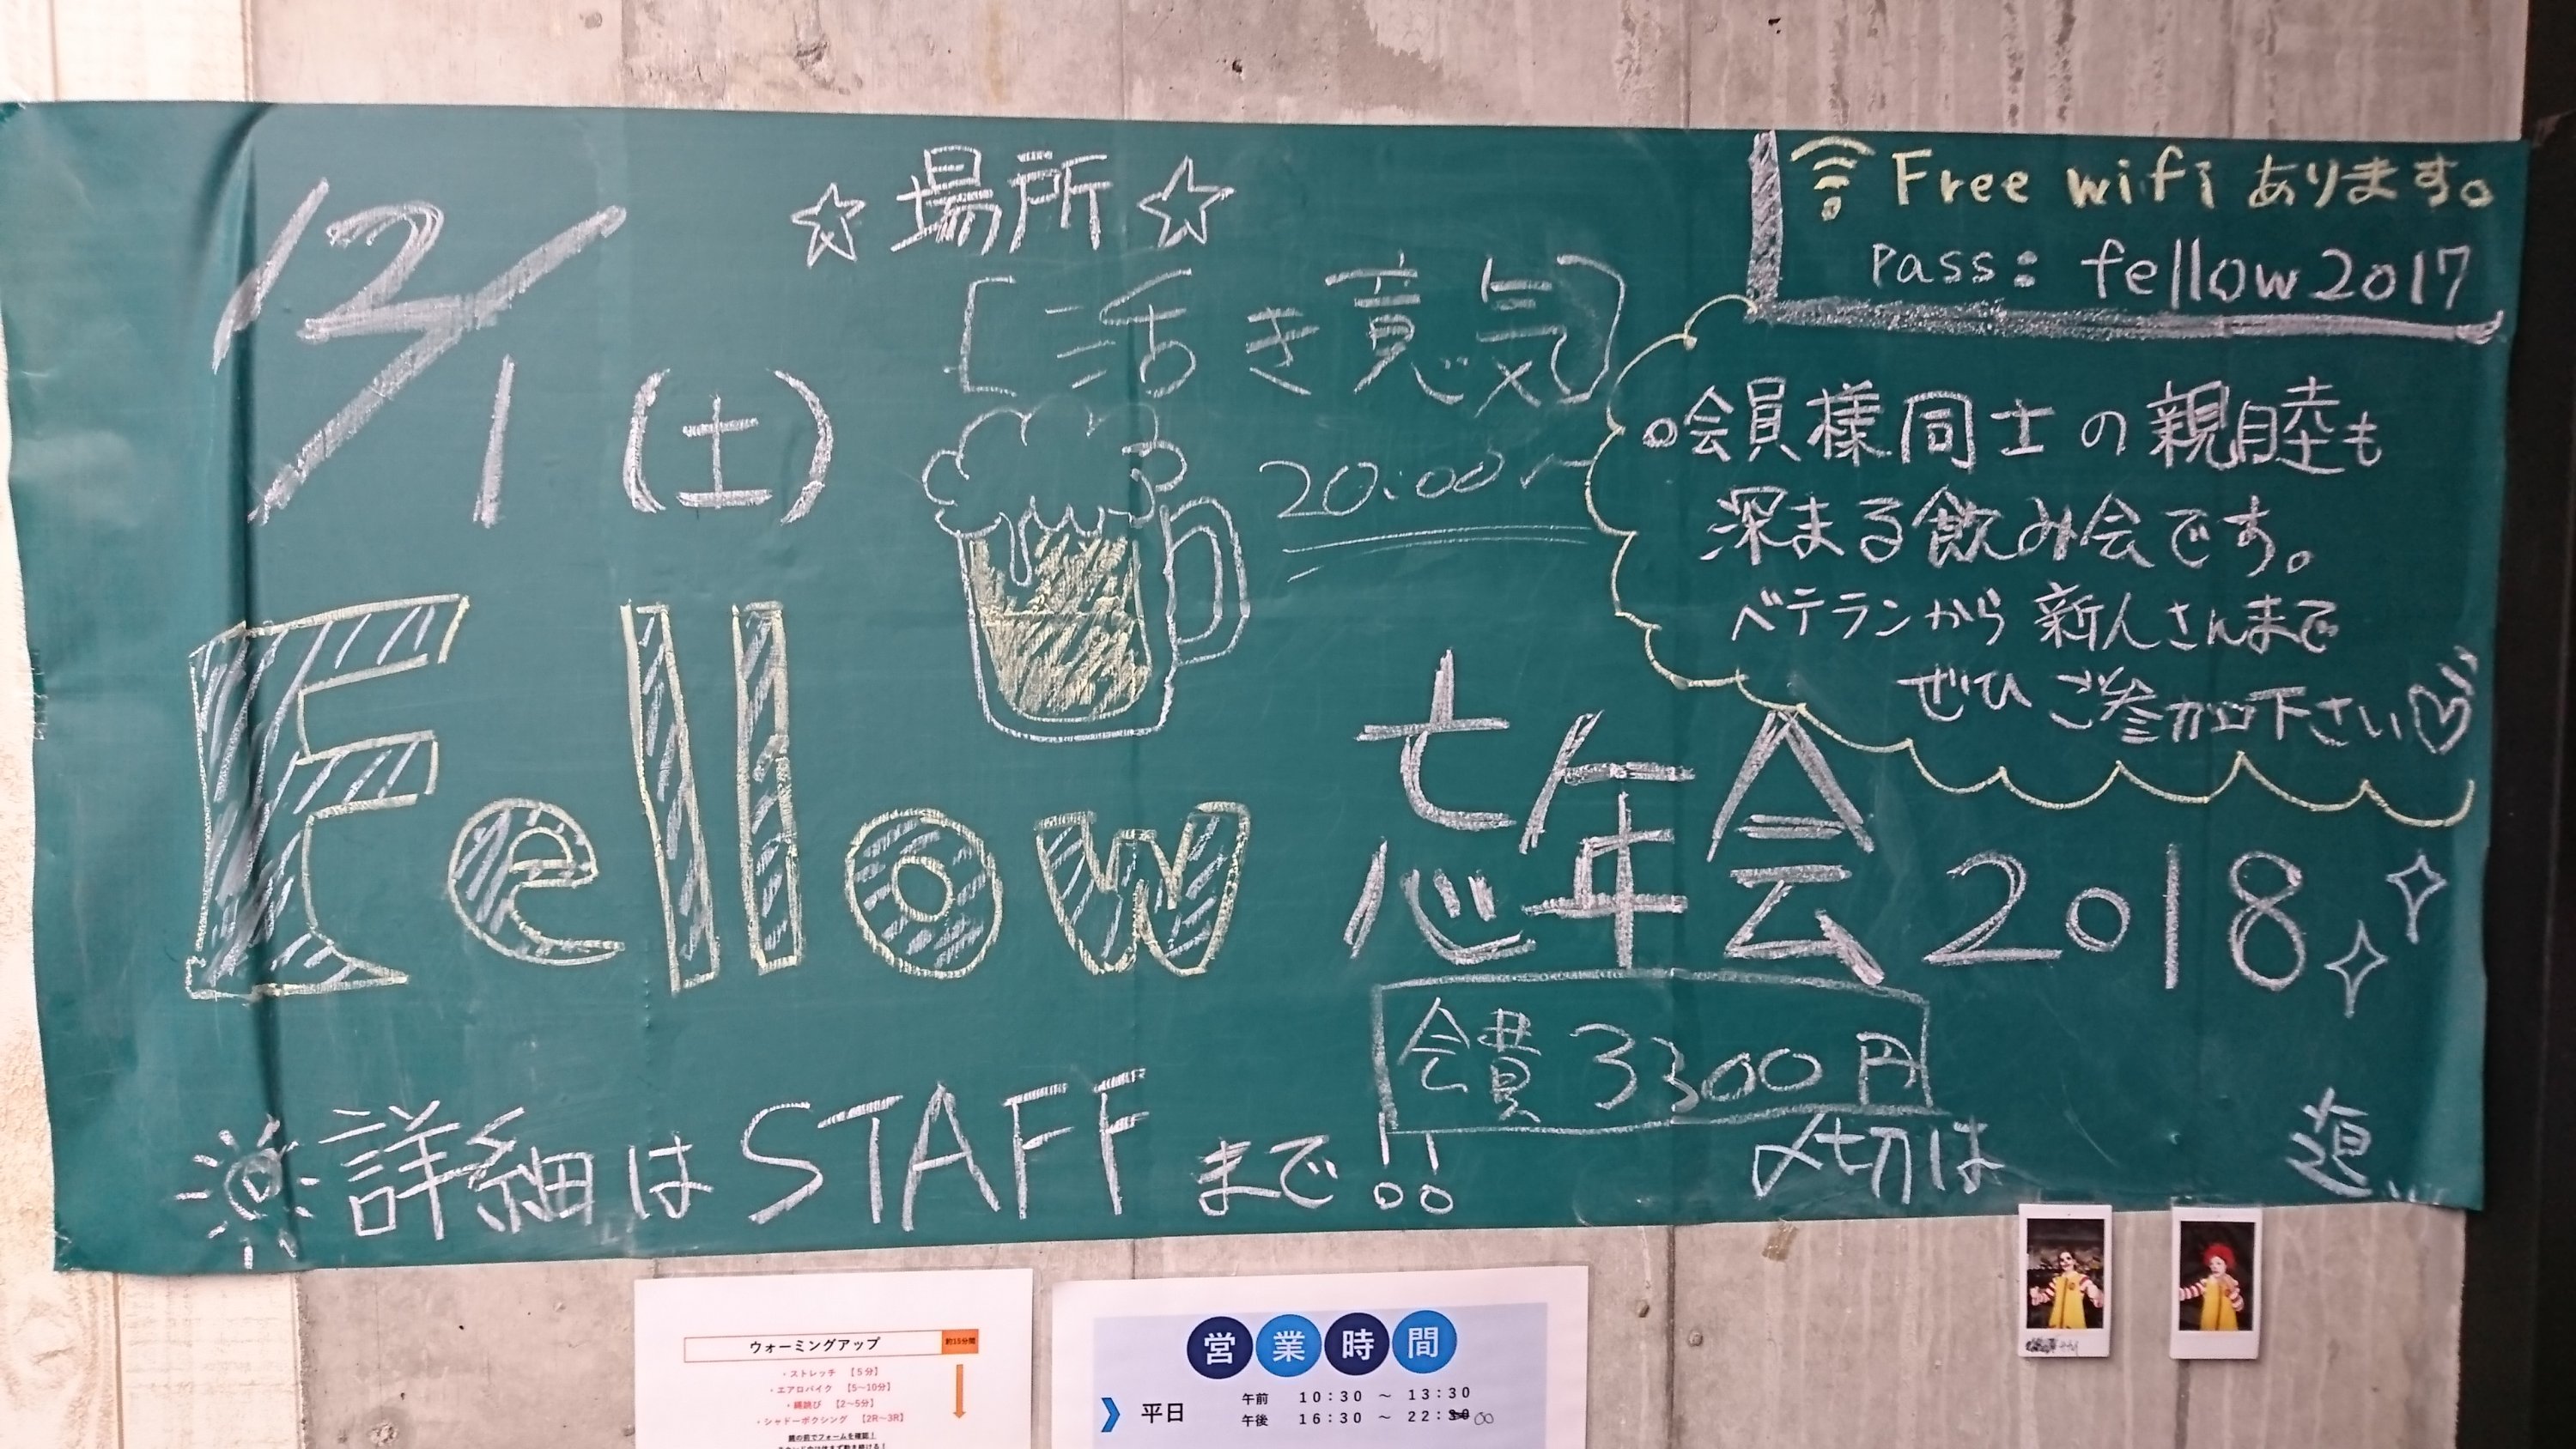 12/1(土)
☆場所☆
[活き意気]
20:00〜
Free wifi あります。
pass: fellow2017
○会員様同士の親睦も
深まる飲み会です。
ベテランから新人さんまで
ぜひご参加下さい♡
Fellow 忘年会 2018
会費 3300円
詳細は STAFF まで!!
〆切は
ウォーミングアップ 約15分間
・ストレッチ 【5分】
・エアロバイク 【5〜10分】
・縄跳び 【2〜5分】
・シャドーボクシング 【2R〜3R】
鏡の前でフォームを確認!
営業時間
平日
午前 10:30 〜 13:30
午後 16:30 〜 22:00